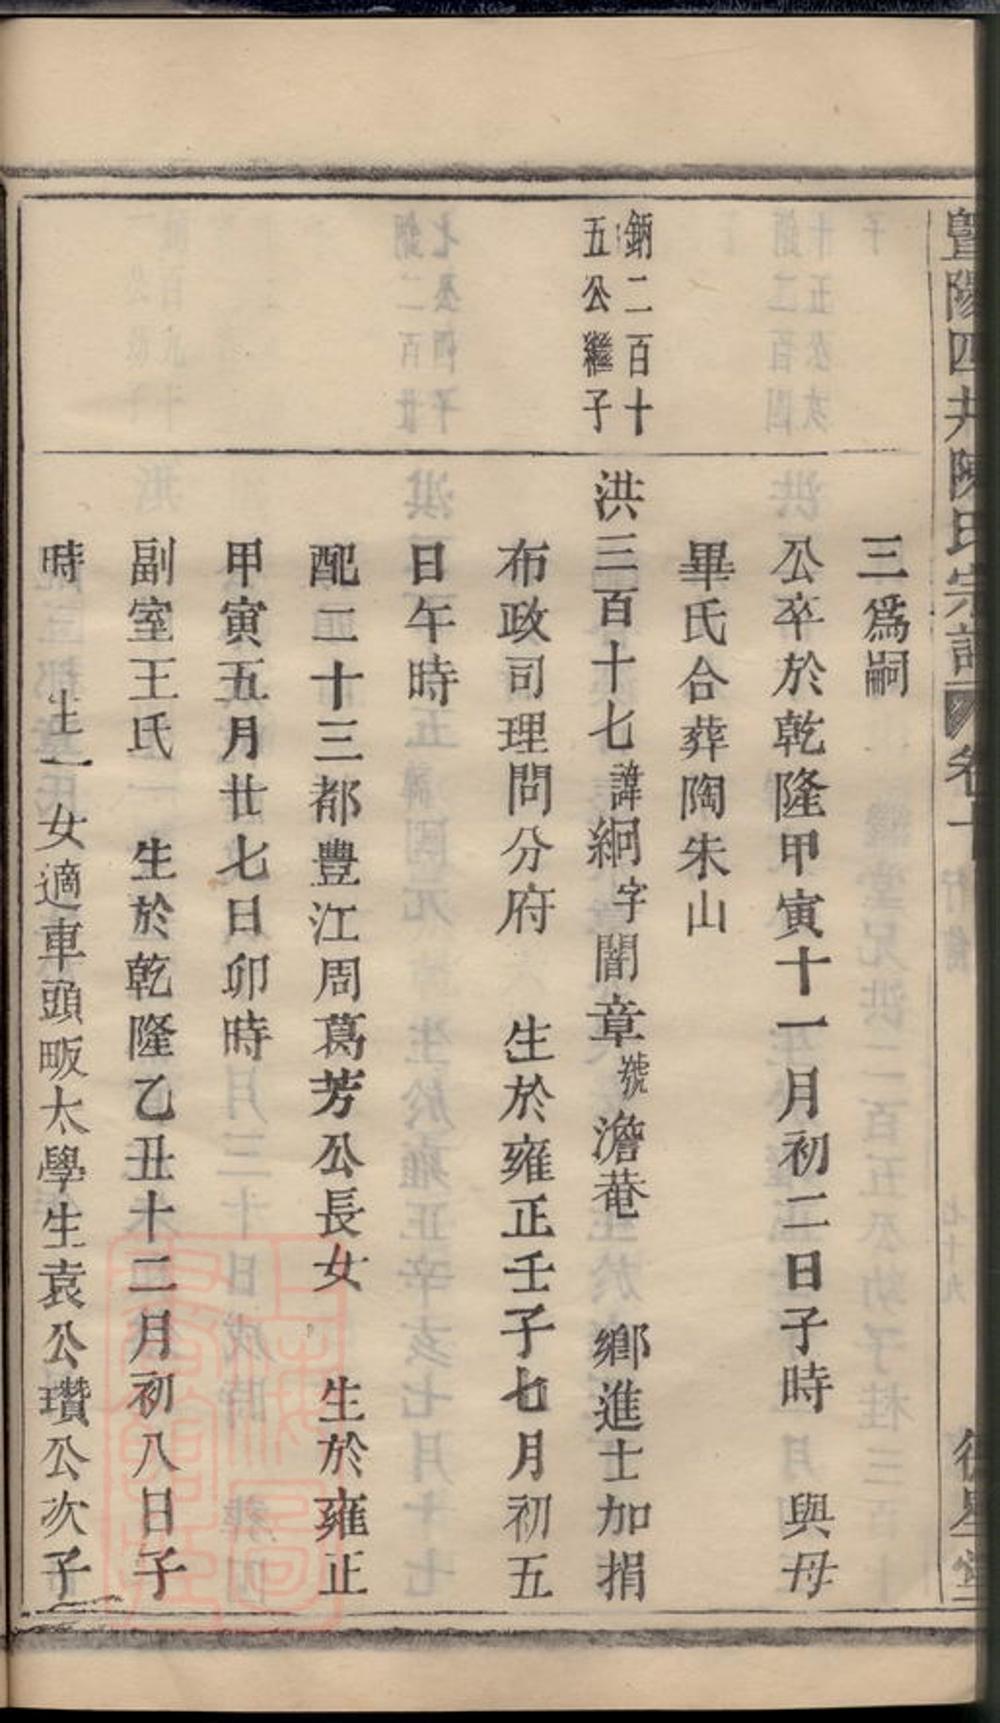 暨陽四井陳氏宗譜 卷十
三爲嗣
公卒於乾隆甲寅十一月初二日子時 與母
畢氏合葬陶朱山
鈵二百十
五公繼子
洪三百十七諱絅字闇章號澹菴 鄉進士加捐
布政司理問分府 生於雍正壬子七月初五
日午時
配二十三都豐江周葛芳公長女 生於雍正
甲寅五月廿七日卯時
副室王氏 生於乾隆乙丑十二月初八日子
時 生一女適車頭畈太學生袁公瓚公次子